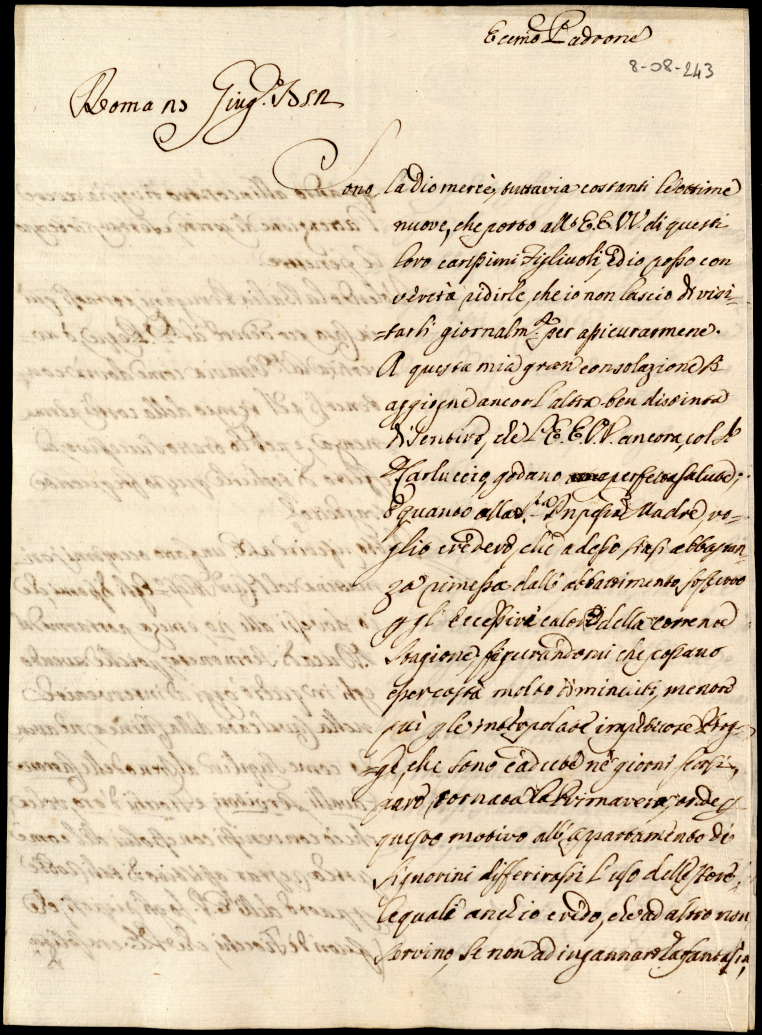 Eccmo Padrone
8-08-243
Roma 23 Giug.o 1752
Sono, la Dio mercè, tuttavia costanti le ottime
nuove, che porto all'E.E. V.V. di questi
loro carissimi Figliuoli, Ed io posso con
verità ridirle, che io non lascio di visi-
tarli giornalm.te per assicurarmene.
A questa mia gran consolazione si
aggiogne ancor l'altra ben distinta
di sentire, che l'E.E. V.V. ancora, col S.r
D. Carluccio, godano perfetta salute;
E quanto alla S.ra Pnpessa Madre, vo-
glio credere, che adesso siasi abbastan-
za rimessa dall'abbattimento sofferto
p gl'eccessivi calori della corrente
Stagione, figurandomi che possano
esser costà molto diminuiti, mentre
qui p le interpolate impetuose Piog-
gie, che sono cadute nè giorni scorsi,
pare tornata la Primavera, onde p
questo motivo all'appartamento de'
Signorini differirassi l'uso delle Store,
le quali anch'io credo, che ad altro non
servino, se non ad ingannare la fantasia,